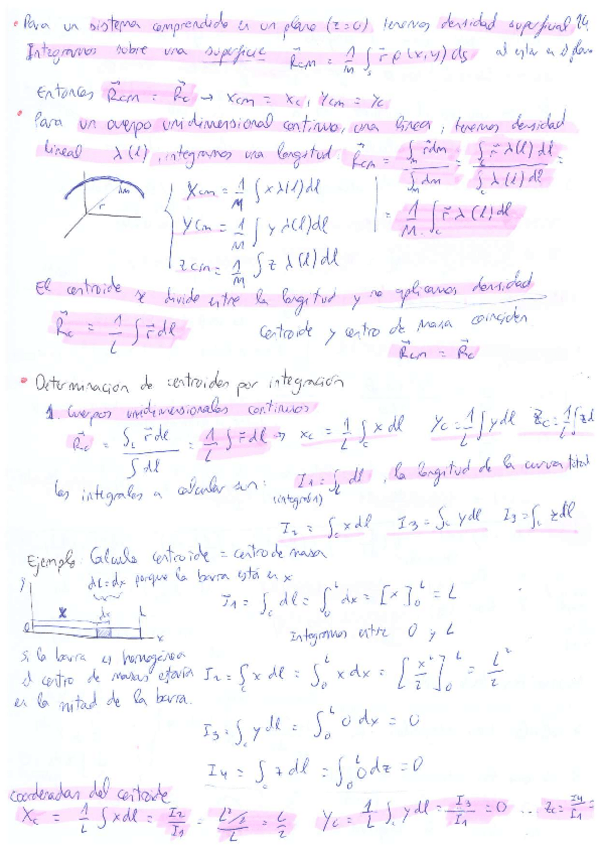 • Para un sistema comprendido en un plano (z=0) tenemos densidad superficial
Integramos sobre una superficie R⃗cm = 1/M ∫s r⃗ ρ(x,y) ds al estar en el plano
Entonces R⃗cm = R⃗c → xcm = xc, Ycm = Yc
• Para un cuerpo unidimensional continuo, una línea, tenemos densidad
lineal λ(l), integramos una longitud: R⃗cm = ∫m r⃗dm / ∫m dm = ∫c r⃗ λ(l) dl / ∫c λ(l) dl =
= 1/M ∫c r⃗ λ(l) dl
dm
r
Xcm = 1/M ∫ x λ(l) dl
Ycm = 1/M ∫ y λ(l) dl
Zcm = 1/M ∫ z λ(l) dl
El centroide se divide entre la longitud y no aplicamos densidad
R⃗c = 1/L ∫ r⃗ dl Centroide y centro de masa coinciden
R⃗cm = R⃗c
• Determinación de centroides por integración
1. Cuerpos unidimensionales continuos
R⃗c = ∫L r⃗dl / ∫ dl = 1/L ∫ r⃗ dl → xc = 1/L ∫c x dl Yc = 1/L ∫ y dl Zc = 1/L ∫ z d
Las integrales a calcular son: I1 = ∫c dl, la longitud de la curva total
(integral 1)
I2 = ∫c x dl I3 = ∫c y dl I3 = ∫c z dl
Ejemplo: Calcula centroide = centro de masa
dl = dx porque la barra está en x
y
x dx L
0 x
I1 = ∫c dl = ∫0^L dx = [x]0^L = L
Integramos entre 0 y L
si la barra es homogénea
el centro de masas estaría
en la mitad de la barra.
I2 = ∫c x dl = ∫0^L x dx = [x²/2]0^L = L²/2
I3 = ∫c y dl = ∫0^L 0 dx = 0
I4 = ∫c z dl = ∫0^L 0 dz = 0
coordenadas del centroide
Xc = 1/L ∫ x dl = I2/I1 = L²/2 / L = L/2 Yc = 1/L ∫c y dl = I3/I1 = 0 ... Zc = I4/I1 =